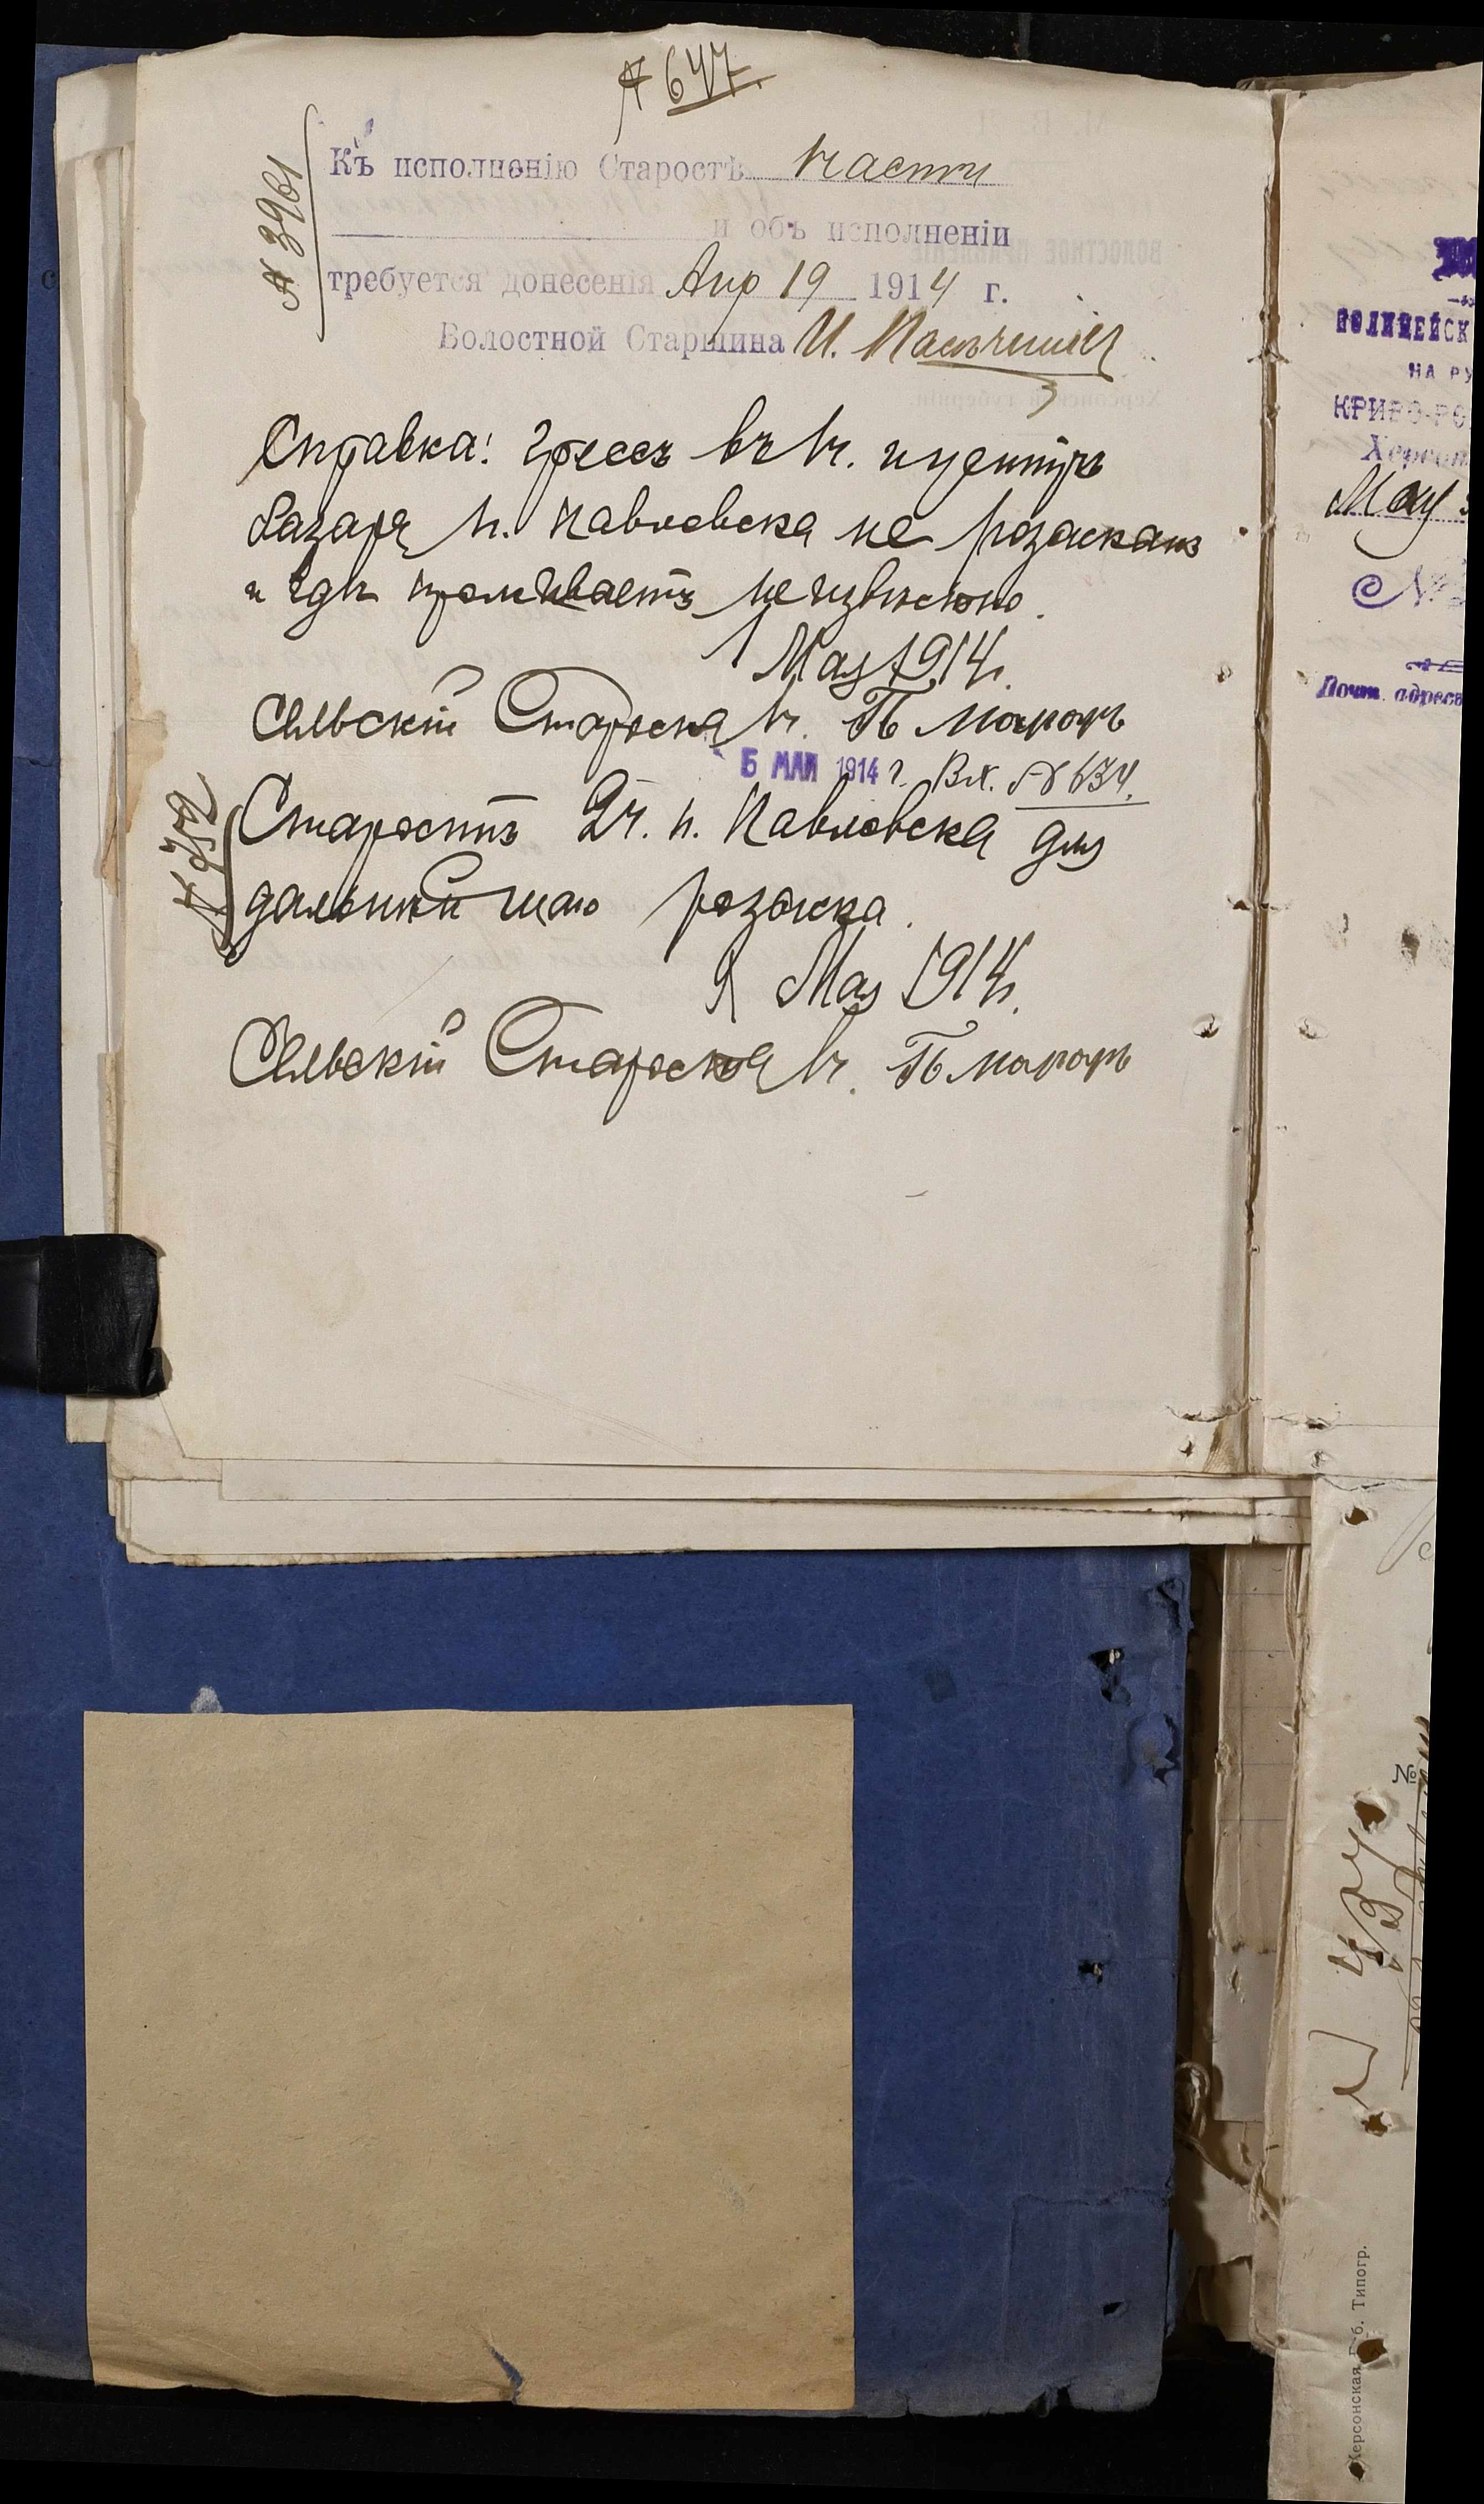 № 647.
№ 3961
Къ исполненію Старостѣ части
и объ исполненіи
требуется донесенія Апр 19 1914 г.
Волостной Старшина И.
Справка: Гросъ въ 1ч. и центрѣ
базара п. Павловска не розысканъ
и гдѣ проживаетъ неизвѣстно.
1 Мая 1914г.
Сельскій Староста 1ч.
5 МАЯ 1914 г. Вх. № 634.
№ 752
Старостѣ 2ч. п. Павловска для
дальнѣйшаго розыска.
9 Мая 1914г.
Сельскій Староста 1ч.
ПОЛИЦЕЙСК
НА РУ
КРИВО-РО
Херсон
Мая
№
Почт. адресъ
№
Херсонская Губ. Типогр.